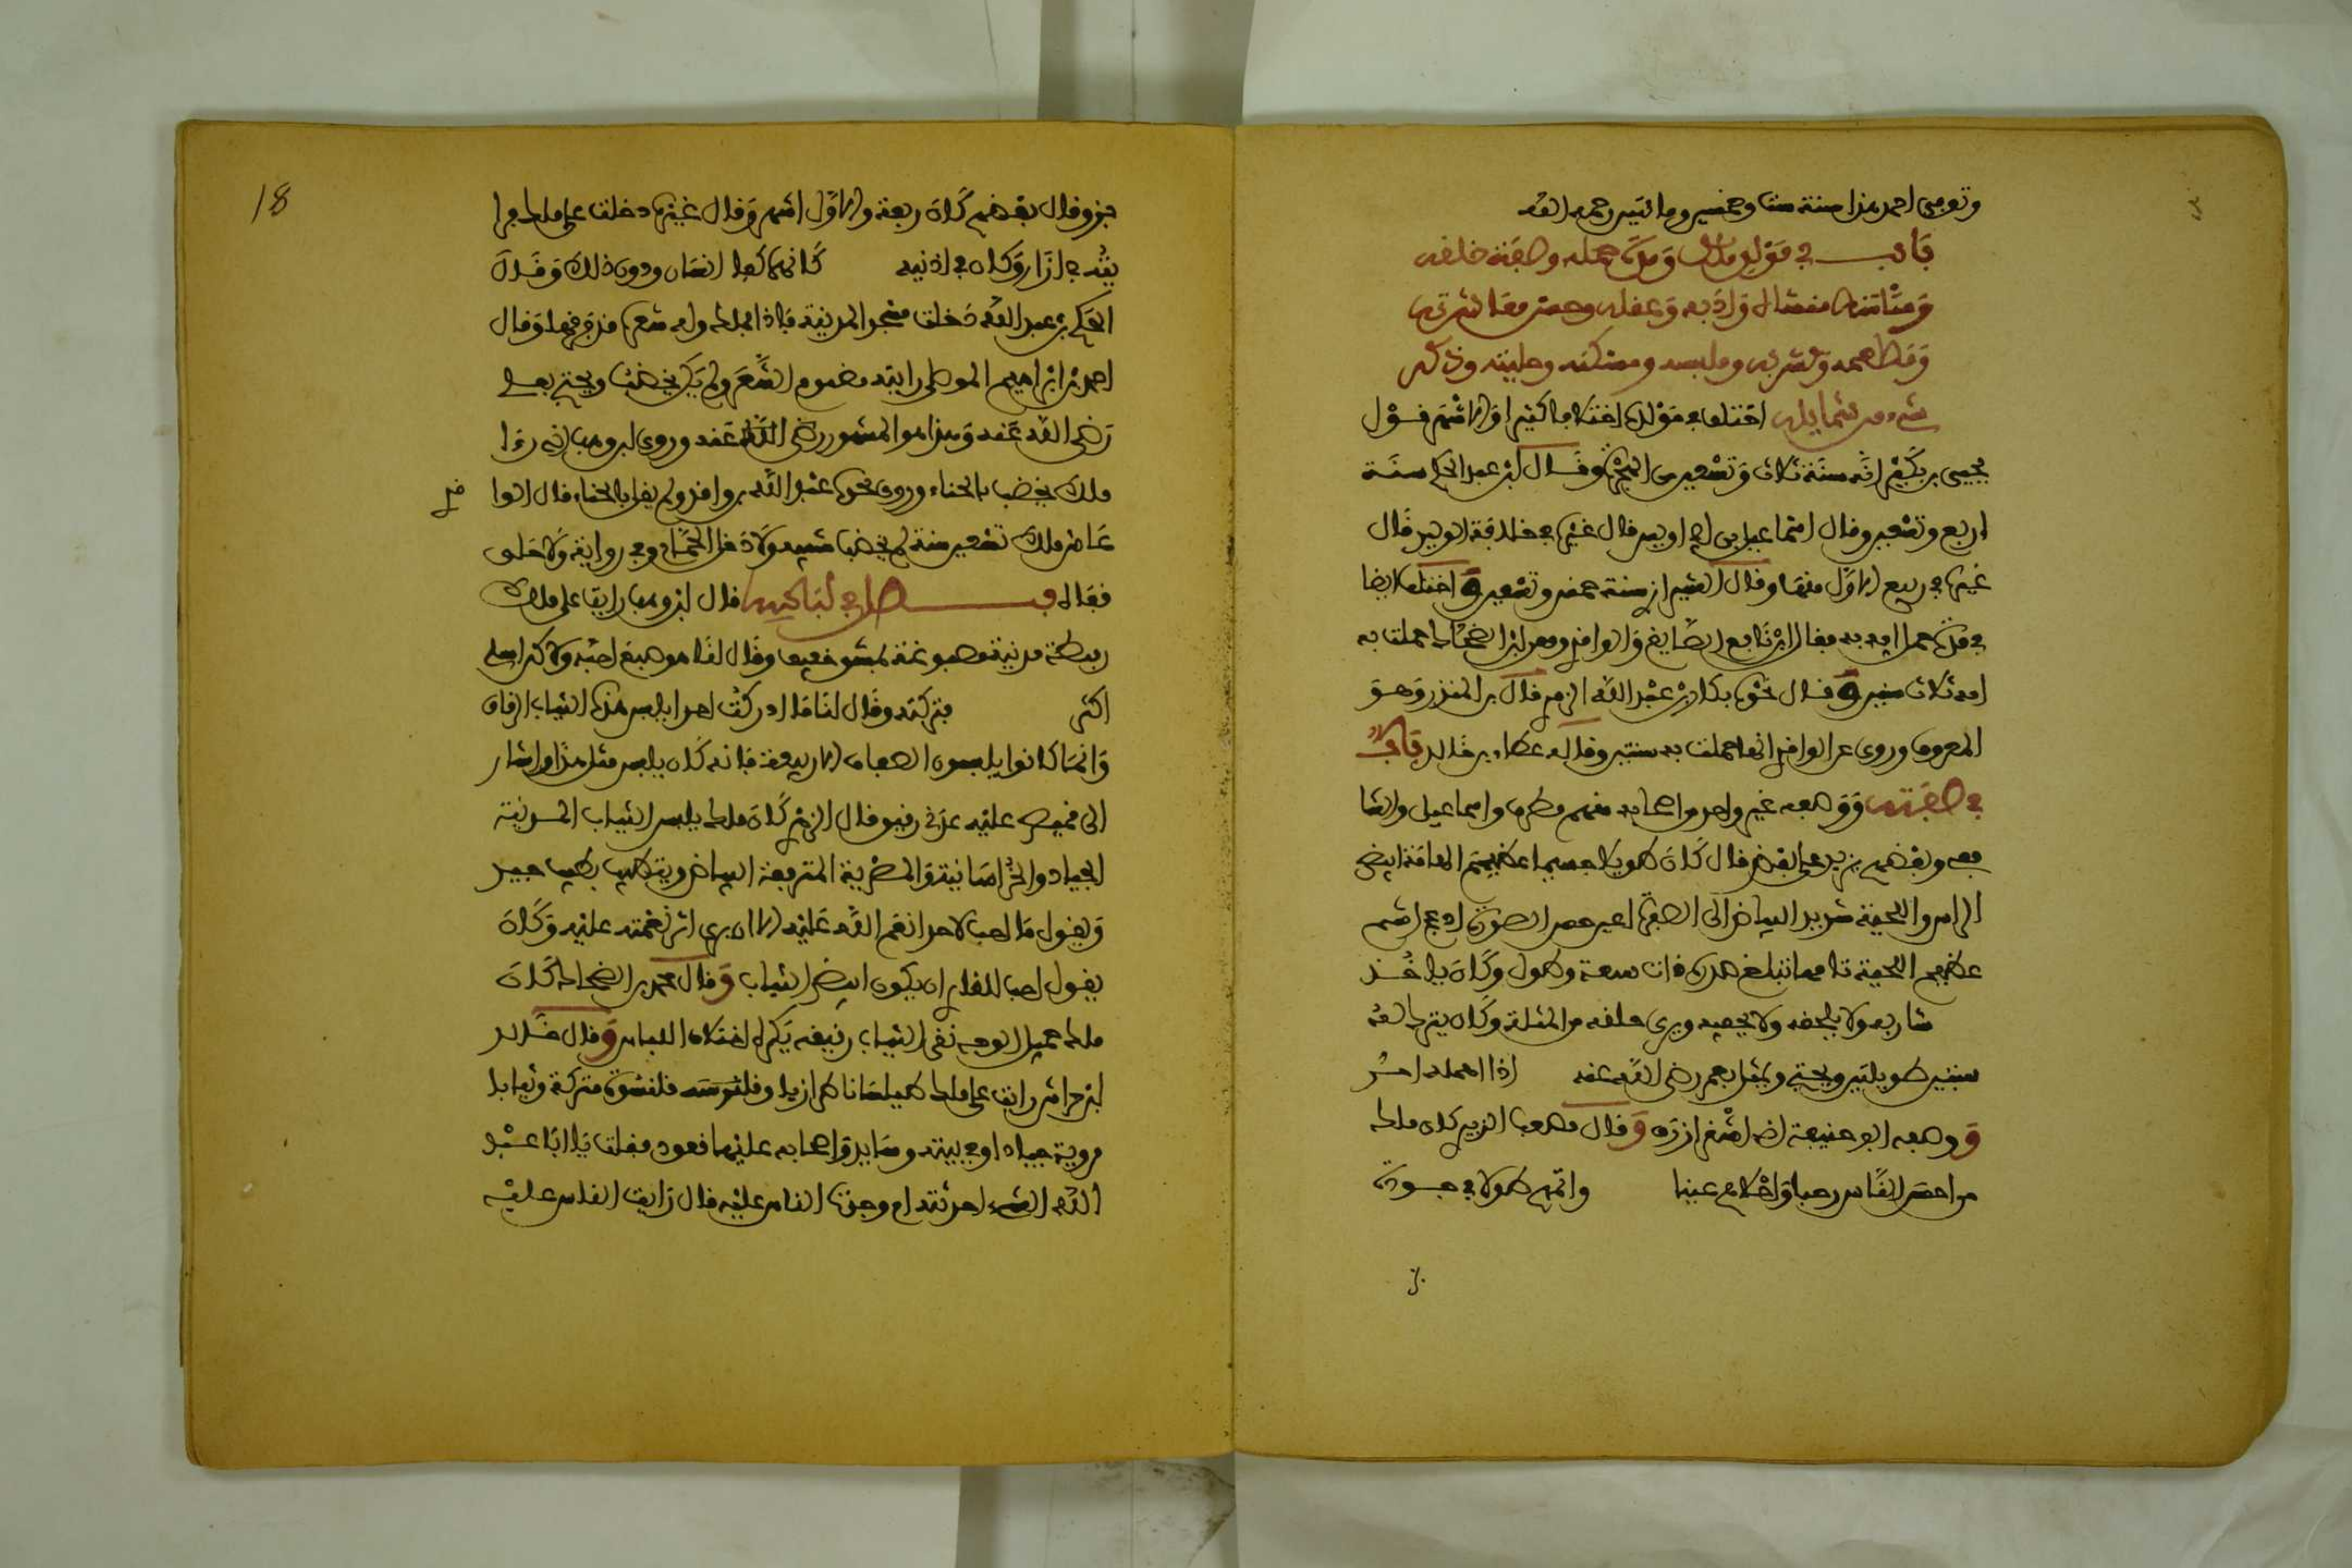 وتوفي احمد هذا سنة ست وخمسين ومائتين رحمه الله
باب في مولد ملك ومدة حمله وصفة خلقه
ومنشاه وادبه وعقله وحسن معاشرته
ومطعمه ومشربه وملبسه ومسكنه وحليته وذكر
شيء من شمايله اختلف في مولده اختلافا كثيرا والاشهر قول
يحيى بن بكير انه سنة ثلاث وتسعين من الهجرة وقال ابن عبد الحكم سنة
اربع وتسعين وقال اسماعيل بن ابي اويس قال غيره في خلافة الوليد قال
غيره في ربيع الاول منها وقال الشيرازي سنة خمس وتسعين واختلف ايضا
في مدة حمل امه به فقال ابن نافع الصايغ والواقدي ومعن وابن الضحاك حملت به
امه ثلاث سنين وقال نحوه بكار بن عبد الله الزبيري قال ابن المنذر وهو
المعروف وروي عن الواقدي انها حملت به سنتين وقاله عطاف بن خالد باب
في صفته ووصفه غير واحد من اصحابه منهم مطرف واسماعيل والشا
فعي وبعضهم يزيد على بعض قال كان طويلا جسيما عظيم الهامة ابيض
الراس واللحية شديد البياض الى الصفرة اعين حسن الصورة اصلع اشم
عظيم اللحية تامها تبلغ صدره ذات سعة وطول وكان ياخذ
شاربه ولا يحلقه ولا يحفيه ويرى حلقه من المثلة وكان يترك له
سبتين طويلتين ويحتج بفعل عمر رضي الله عنه اذا اهمه امر
ووصفه ابو حنيفة انه اشقر ازرق وقال مصعب الزبيري كان ملك
من احسن الناس وجها واحلاهم عينا واتمهم طولا في جودة
جز وقال بعضهم كان ربعة والاول اشهر وقال غيره دخلت على ملك فرا
يته في ازار وكان في اذنيه كانهما كفا انسان ودون ذلك وقال
الحكم بن عبد الله دخلت مسجد المدينة فاذا ملك وله شعرة قد فرقها وقال
احمد بن ابراهيم الموصلي رايته مضموم الشعر ولم يكن يخضب ويحتج بعلي
رضي الله عنه وهذا هو المشهور رضي الله عنه وروى ابن وهب انه رءا
ملك يخضب بالحناء وروى نحوه عبد الله بن واقد ولم يقل بالحناء قال الوا
قد
عاش ملك تسعين سنة لم يخضب شيبه ولا دخل الحمام وفي رواية ولا حلق
فقاه فصل في لباسه قال ابن وهب رايت على ملك
ريطة مدنية مصبوغة بمشق خفيف وقال لنا هو صبغ احبه ولاكن اهلي
اكثروا فتركته وقال لنا ما ادركت احدا يلبس هذه الثياب الرقاق
وانما كانوا يلبسون الصفاق الا ربيعة فانه كان يلبس مثل هذا واشار
الى قميص عليه عدني رقيق قال الزبيري كان ملك يلبس الثياب المدينة
الجياد والخراسانية والمصرية المترفعة البياض ويتطيب بطيب جيد
ويقول ما احب لاحد انعم الله عليه الا ان يرى اثر نعمته عليه وكان
يقول احب للقارئ ان يكون ابيض الثياب وقال محمد بن الضحاك كان
ملك جميل الوجه نقي الثياب رقيقه يكره اختلاف اللباس وقال خالد
ابن خداش رايت على ملك طيلسانا طرازيا وقلنسوة متركة وثيابا
مروية جيادا وفي بيته وسايد واصحابه عليها قعود فقلت يا ابا عبد
الله الشيء احدثته ام وجدت الناس عليه قال رايت الناس عليه
18